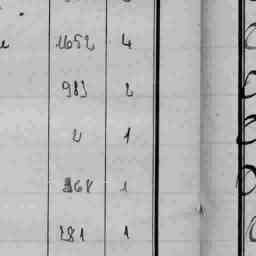 1652 4
983 2
2 1
368 1
281 1